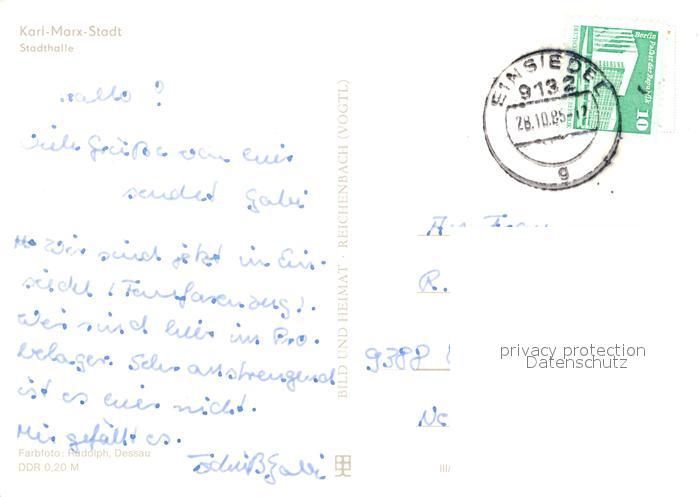 Karl-Marx-Stadt
Stadthalle
Hallo!
Viele Grüße von hier
sendet Gabi
Wir sind jetzt in Ein-
siedel (Fanfarenzug).
Wir sind hier im Pro-
belager. Sehr anstrengend
ist es hier nicht.
Mir gefällt es.
Tschüß Gabi
Farbfoto: Rudolph, Dessau
DDR 0,20 M
BILD UND HEIMAT · REICHENBACH (VOGTL)
III/
EINSIEDEL
9132
28.10.85-17
g
Berlin Palast der Republik
10
R.
9388
privacy protection
Datenschutz